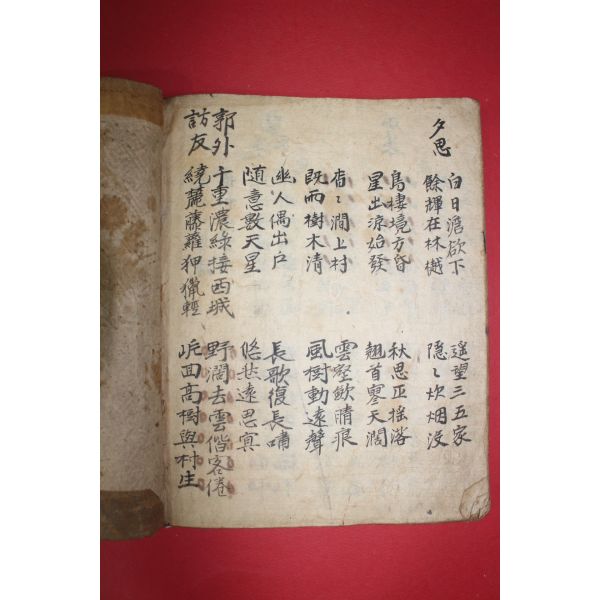 夕思
白日澹欲下 遥望三五家
餘輝在林樾 隠〻炊烟没
鳥棲境方昏 秋思正揺落
星出凉始發 翹首寥天濶
杳〻澗上村 雲壑飲晴痕
既而樹木清 風樹動遠聲
幽人偶出戸 長歌復長嘯
随意數天星 悠悲遠思冥
郭外訪友
千重濃綠接西城 野濶去雲偕客倦
繞麓藤蘿狎獵輕 岠回高樹與村生